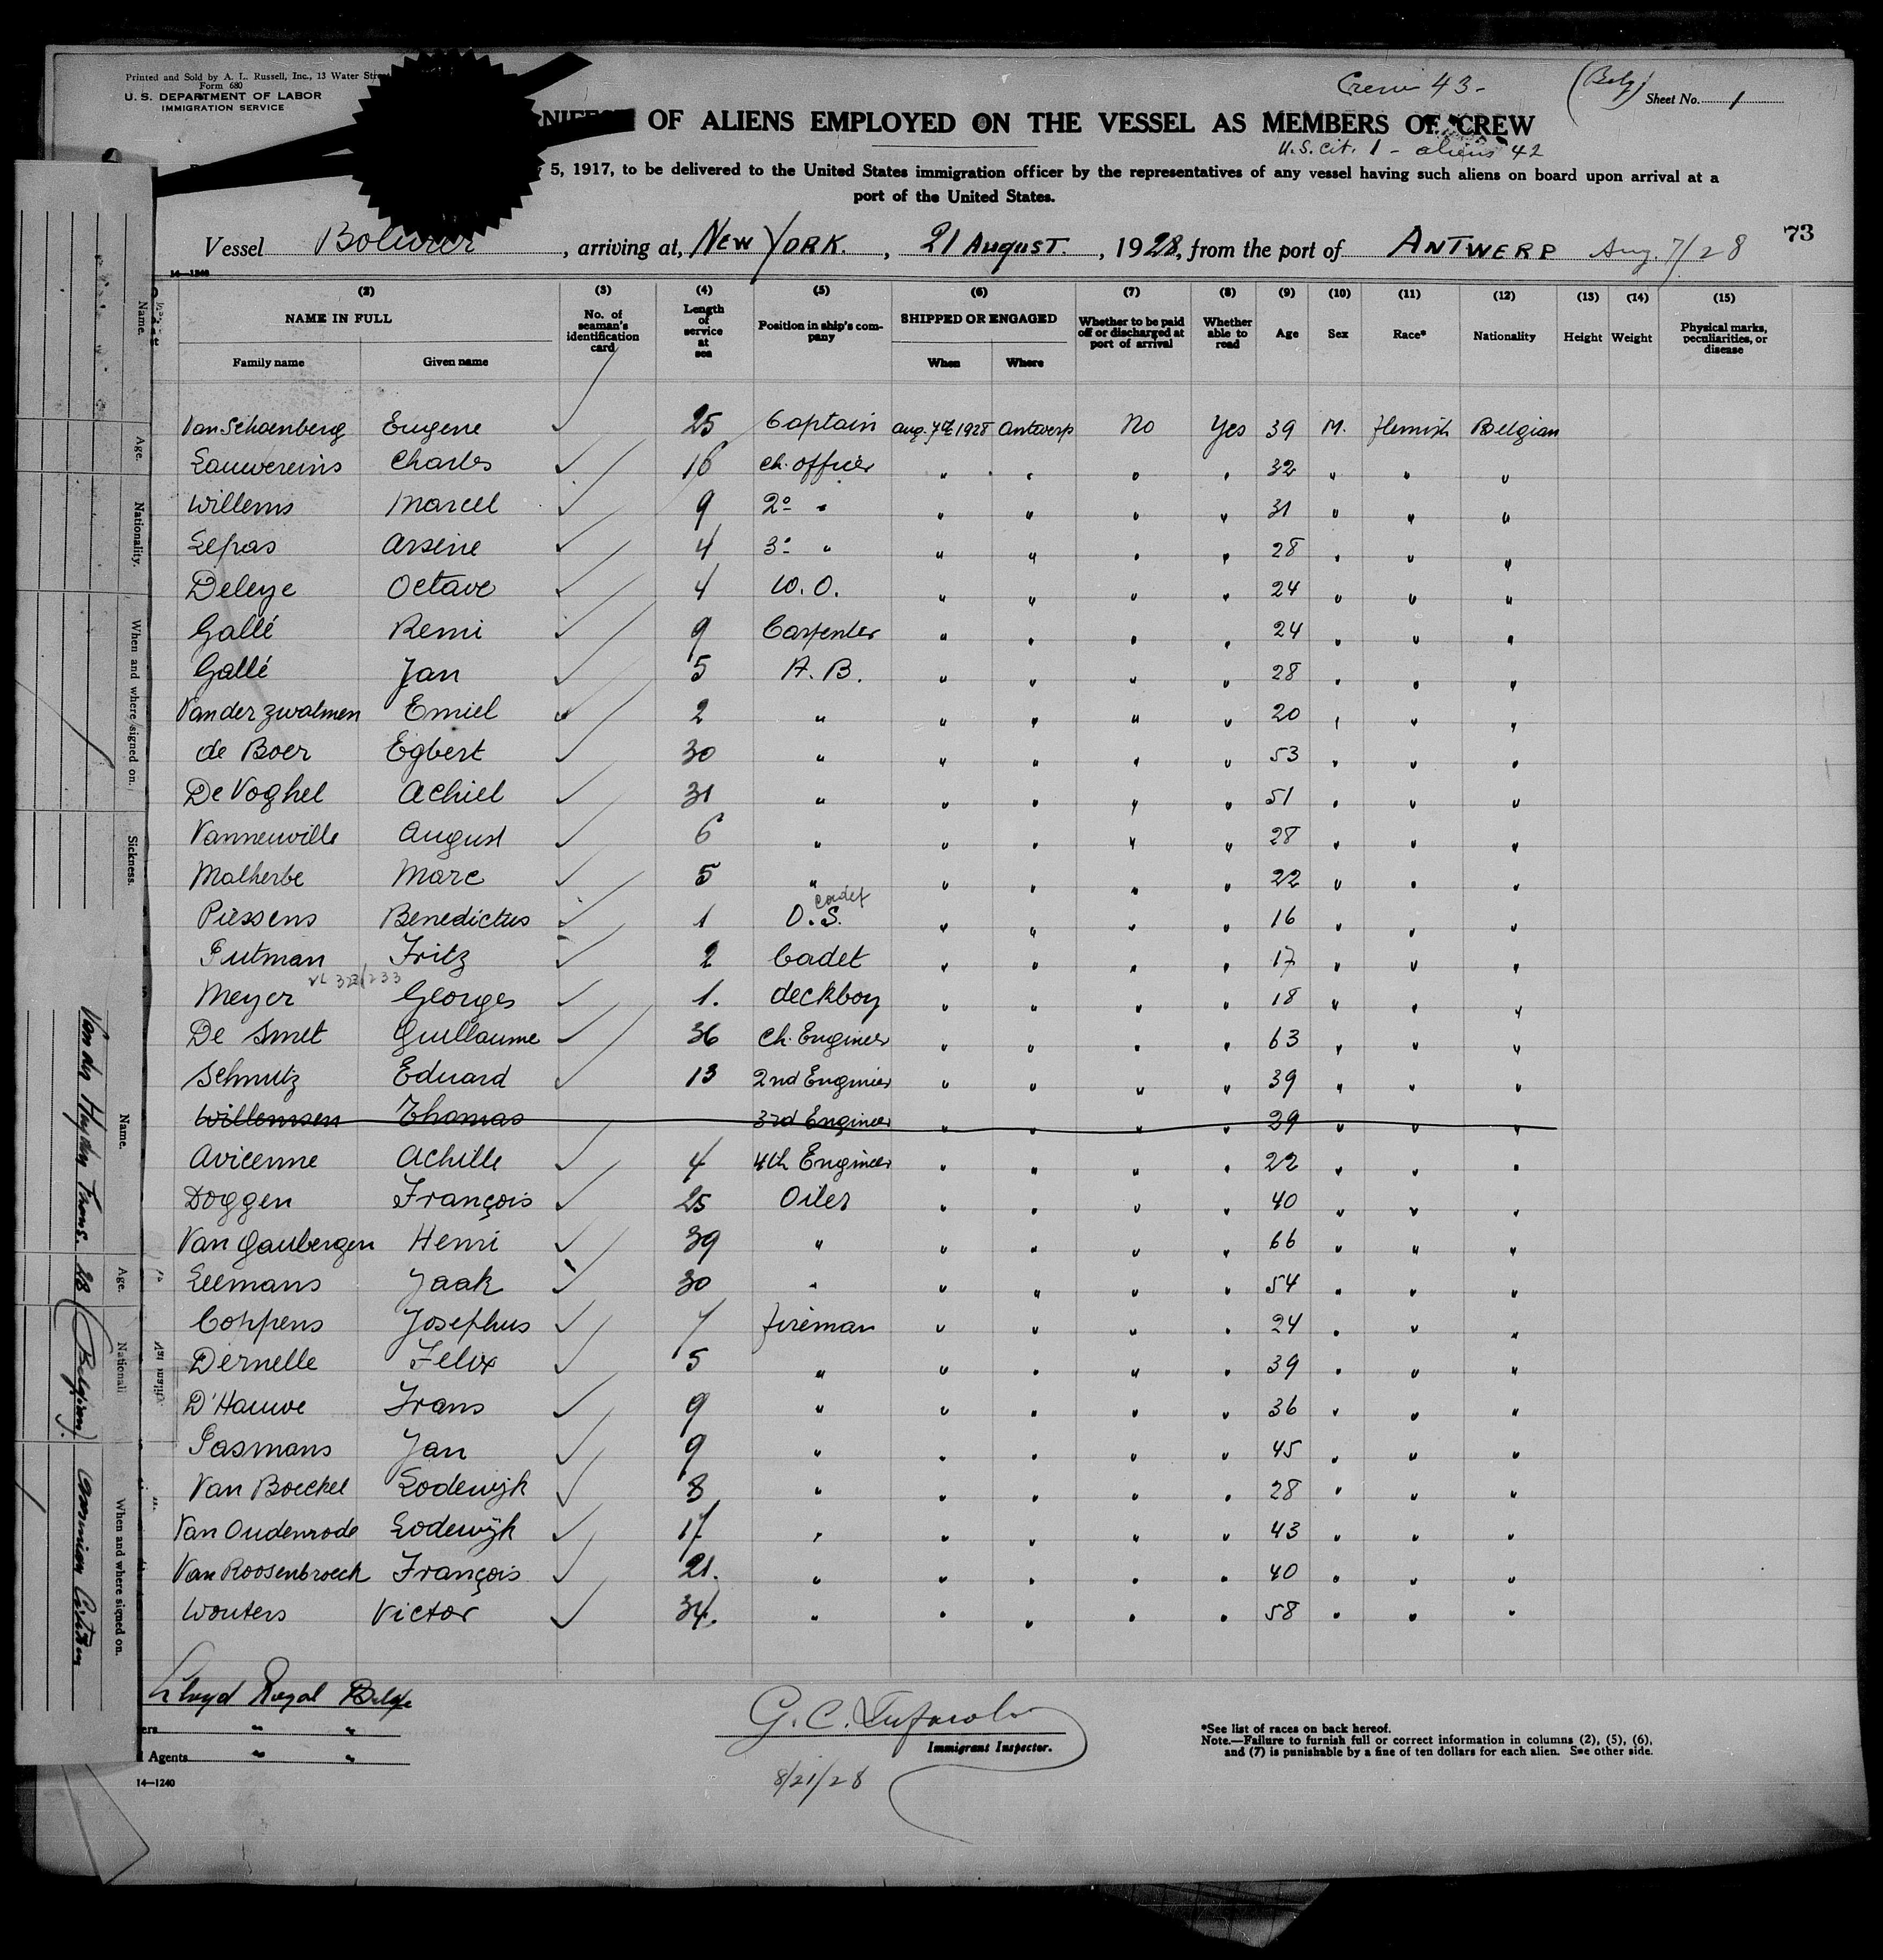 Printed and Sold by A. L. Russell, Inc., 13 Water
Form 680
U. S. DEPARTMENT OF LABOR
IMMIGRATION SERVICE
Crew 43 -
(Belg)
Sheet No. 1
OF ALIENS EMPLOYED ON THE VESSEL AS MEMBERS OF CREW
U.S. cit. 1 - aliens 42
5, 1917, to be delivered to the United States immigration officer by the representatives of any vessel having such aliens on board upon arrival at a
port of the United States.
73
Vessel , arriving at, NEW YORK. , 21 AUGUST. , 1928, from the port of ANTWERP Aug. 7/28
14—1240
(2) (3) (4) (5) (6) (7) (8) (9) (10) (11) (12) (13) (14) (15)
NAME IN FULL No. of seaman's identification card Length of service at sea Position in ship's company SHIPPED OR ENGAGED Whether to be paid off or discharged at port of arrival Whether able to read Age Sex Race* Nationality Height Weight Physical marks, peculiarities, or disease
Family name Given name When Where
Van Schoenberg Eugene ✓ 25 Captain Aug. 7th 1928 Antwerp No Yes 39 M. Flemish Belgian
Lauwereins Charles ✓ 16 Ch. officer " " " " 32 " " "
Willems Marcel ✓ 9 2º " " " " " 31 " " "
Lepas Arsène ✓ 4 3º " " " " " 28 " " "
Deleye Octave ✓ 4 W. O. " " " " 24 " " "
Gallé Remi ✓ 9 Carpenter " " " " 24 " " "
Gallé Jan ✓ 5 A. B. " " " " 28 " " "
Van der Zwalmen Emiel ✓ 2 " " " " " 20 " " "
de Boer Egbert ✓ 30 " " " " " 53 " " "
De Voghel Achiel ✓ 31 " " " " " 51 " " "
Vanneuville August ✓ 6 " " " " " 28 " " "
Malherbe Marc ✓ 5 " " " " " 22 " " "
cadet
Piessens Benedictus ✓ 1 O. S. " " " " 16 " " "
Putman Fritz ✓ 2 Cadet " " " " 17 " " "
Meyer Georges ✓ 1. deckboy " " " " 18 " " "
De Smet Guillaume ✓ 36 Ch. Engineer " " " " 63 " " "
Schmitz Eduard ✓ 13 2nd Engineer " " " " 39 " " "
Willemsen Thomas 3rd Engineer " " " " 29 " " "
Avicenne Achille ✓ 4 4th Engineer " " " " 22 " " "
Doggen François ✓ 25 Oiler " " " " 40 " " "
Van Gaubergen Henri ✓ 39 " " " " " 66 " " "
Leemans Jaak ✓ 30 " " " " " 54 " " "
Coppens Josephus ✓ 7 fireman " " " " 24 " " "
Dernelle Felix ✓ 5 " " " " " 39 " " "
D'Hauwe Frans ✓ 9 " " " " " 36 " " "
Pasmans Jan ✓ 9 " " " " " 45 " " "
Van Boeckel Lodewijk ✓ 8 " " " " " 28 " " "
Van Oudenrode Lodewijk ✓ 17 " " " " " 43 " " "
Van Roosenbroeck François ✓ 21. " " " " " 40 " " "
Wouters Victor ✓ 34. " " " " " 58 " " "
Lloyd Royal Belge
ers " "
Agents " "
14—1240
G. C.
Immigrant Inspector.
8/21/28
*See list of races on back hereof.
Note.—Failure to furnish full or correct information in columns (2), (5), (6),
and (7) is punishable by a fine of ten dollars for each alien. See other side.
Name. Age. Nationality. When and where signed on. Sickness.
Name. Age. Nationali When and where signed on.
Van der Heyden Frans. 28 (Belgian)